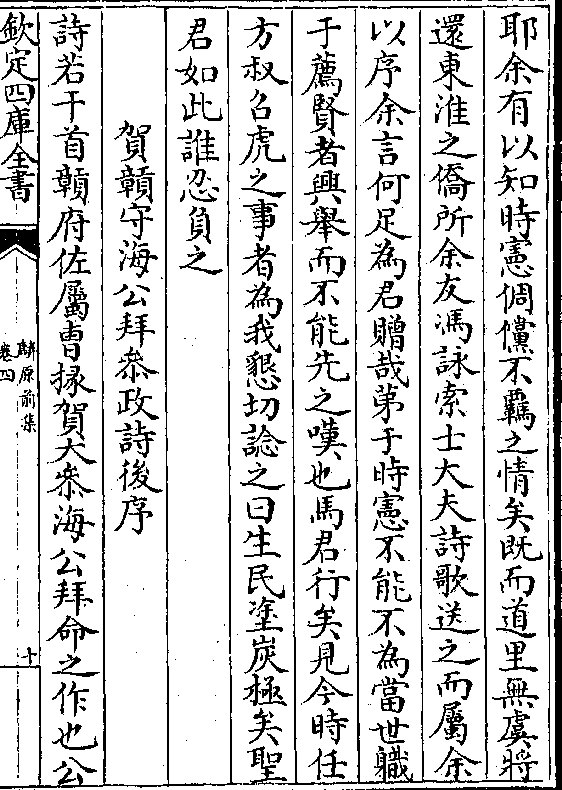 耶余有以知時憲倜儻不羈之情矣既而道里無虞將
還東淮之僑所余友馮詠索士大夫詩歌送之而屬余
以序余言何足為君贈哉苐于時憲不能不為當世職
于薦賢者興舉而不能先之嘆也馬君行矣見今時任
方叔召虎之事者為我懇切諗之曰生民塗炭極矣聖
君如此誰忍負之
賀贑守海公拜叅政詩後序
詩若干首贑府佐屬曹掾賀大叅海公拜命之作也公
欽定四庫全書
麟原前集
卷四
十